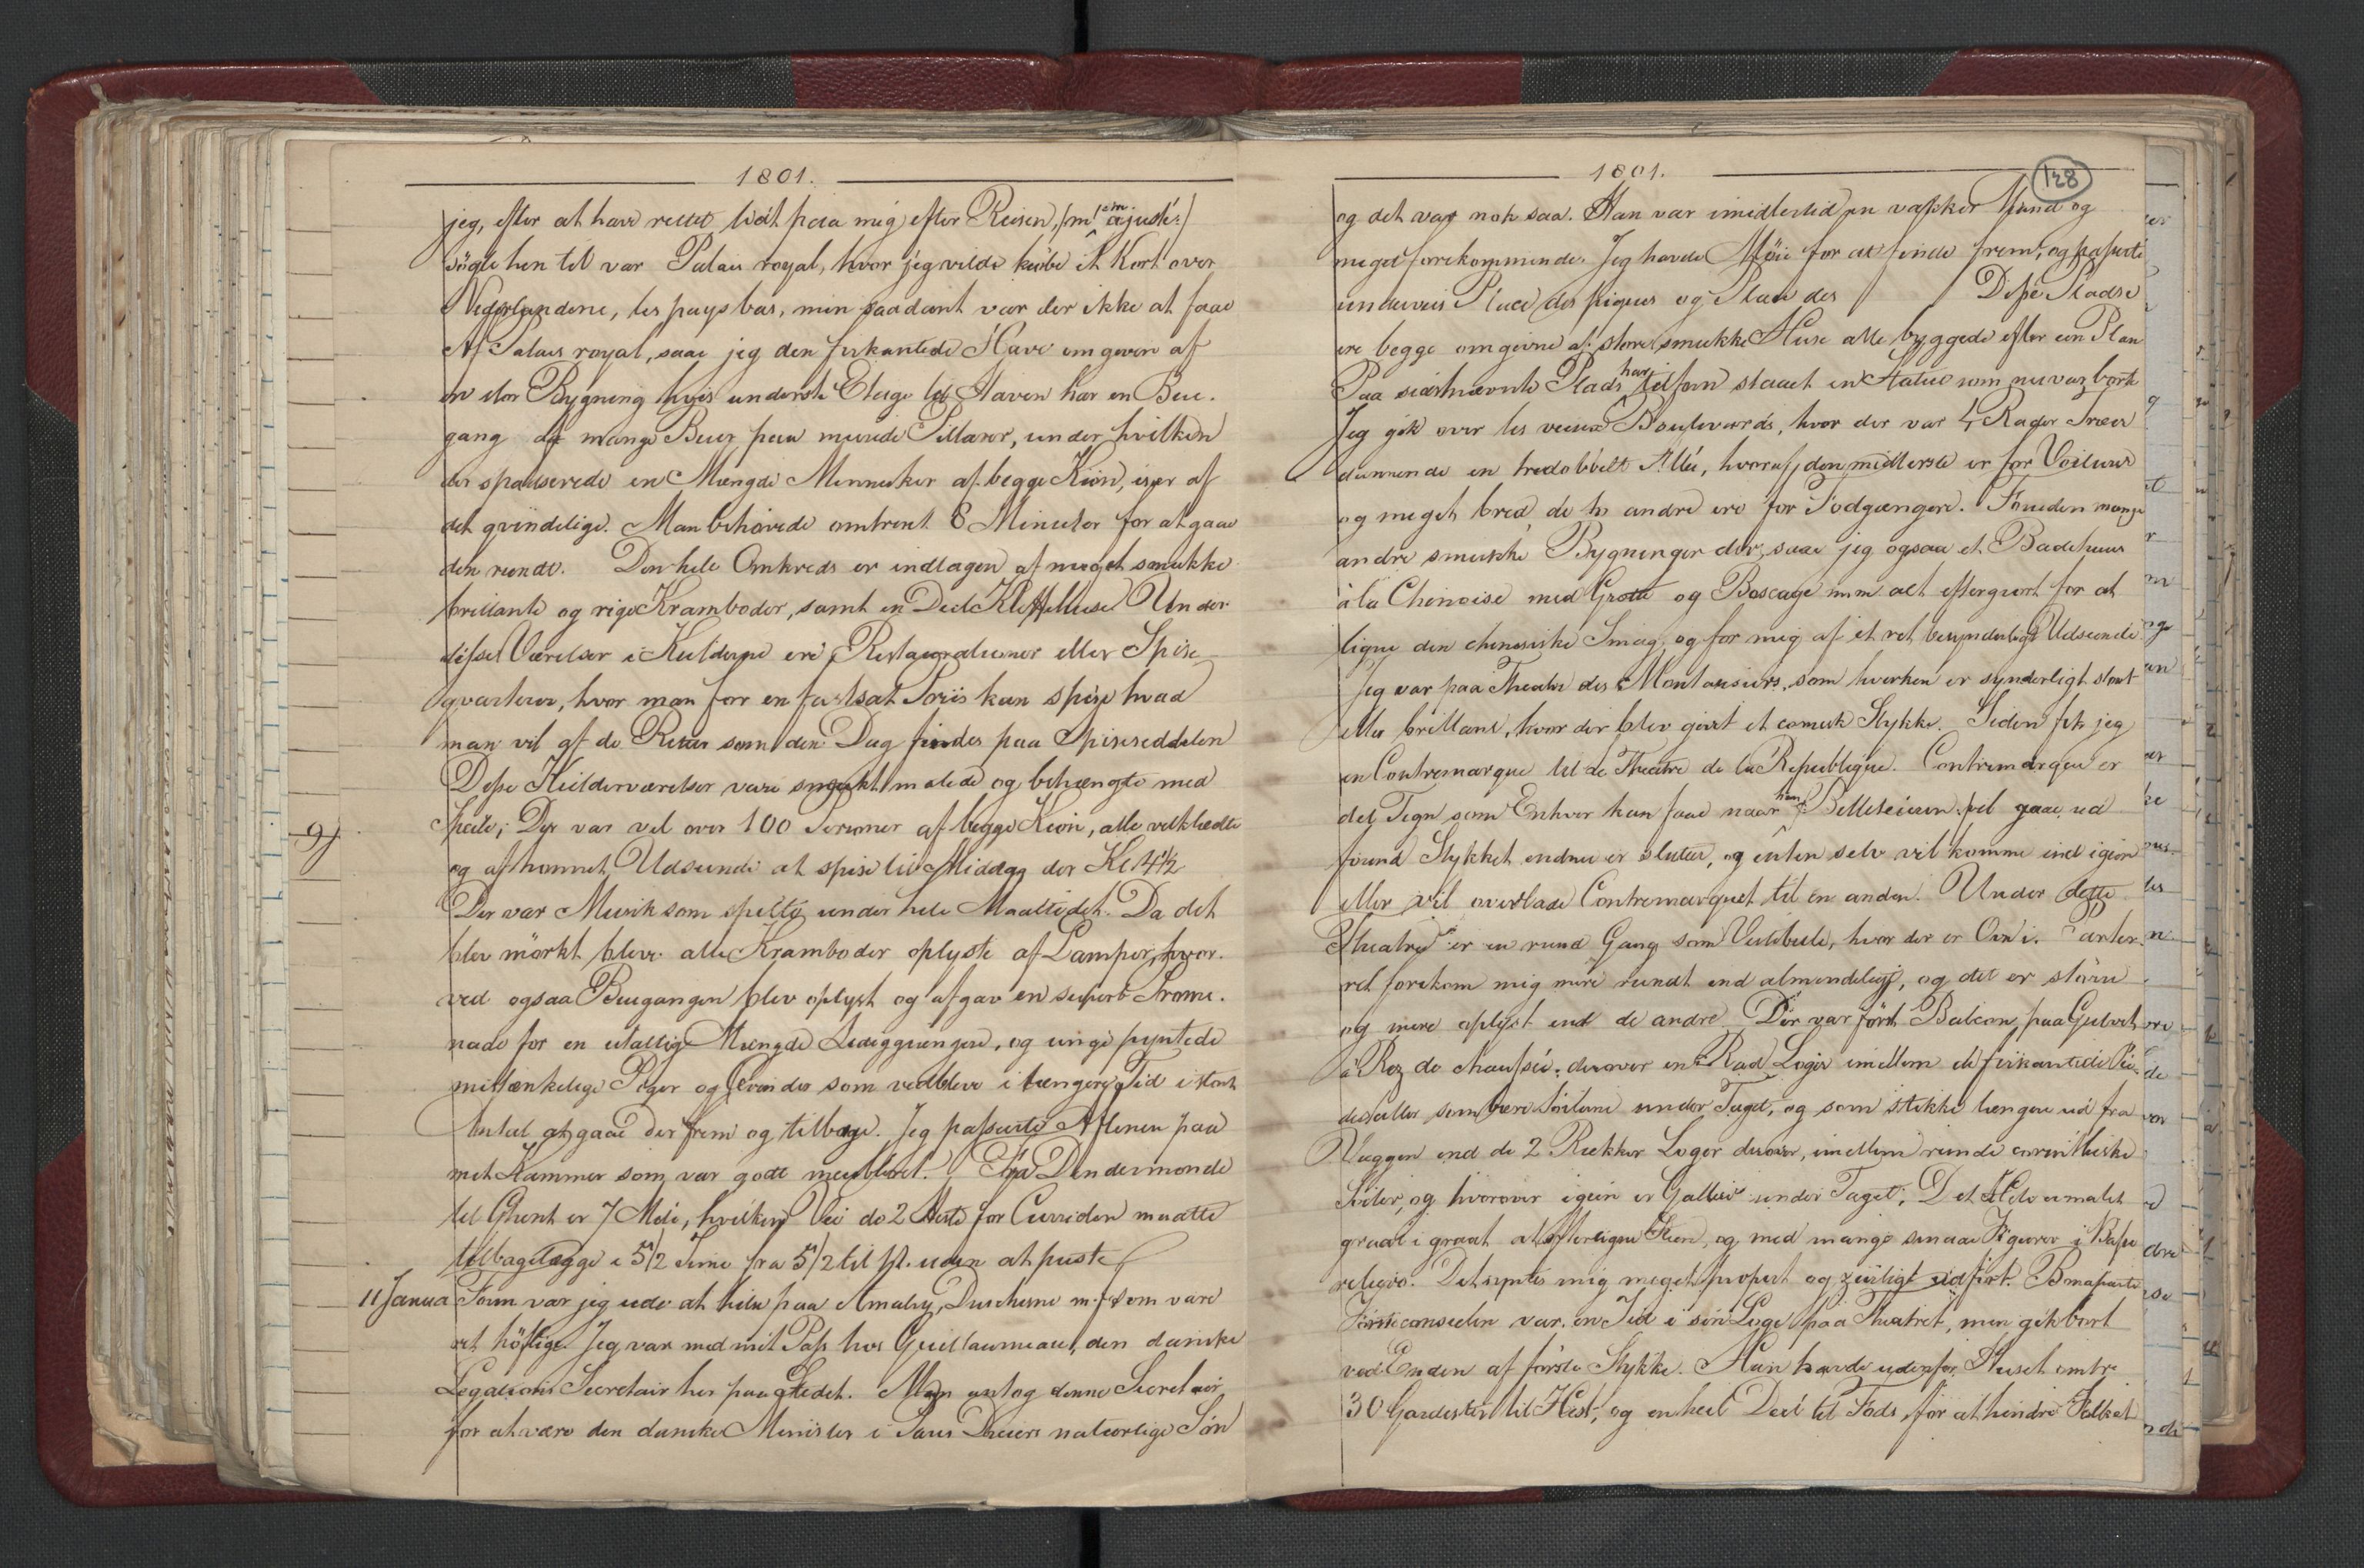 1801.
jeg, efter at have rettet lidt paa mig efter Reisen, (m' em. ajusté:)
sögte hen til var Palais royal, hvor jeg vilde kiøbe et Kort over
Nederlandene, les pays bas, men saadant var der ikke at faae
Af Palais royal, saae jeg den firkantede Have omgiven af
en stor Bygning hvis underste Etage til Haven har en Bue-
gang af mange Buer paa murede Pillarer, under hvilken
der spadserede en Mængde Mennesker af begge Kiön, især af
det qvindelige. Man behövede omtrent 8 Minuter for at gaae
den rundt. Den hele Omkreds er indtagen af meget smukke
brillante og rige Kramboder, samt en Deel Kaffehuse. Under
disse Værelser i Kielderne ere Restaurationer eller Spise-
qvarterer, hvor man for en fastsat Priis kan spise hvad
man vil af de Retter som den Dag findes paa Spiseseddelen
Disse Kielderværelser vare smukt malede og behængte med
Speile; Der var vel over 100 Personer af begge Kiön, alle velklædte
og af honnet Udseende at spise til Middag der Kl 4 1/2
9/
Der var Musik som spilte under hele Maaltidet. Da det
blev mörkt bleve alle Kramboder oplyste af Lamper, hvor-
ved ogsaa Buegangen blev oplyst og afgav en superb Prome-
nade for en utallig Mængde Lediggængere, og unge pyntede
mistænkelige Piger og Qvinder som vedbleve i længere Tid i stort
Antal at gaae der frem og tilbage. Jeg passerte Aftenen paa
mit Kammer som var godt meubleret. Fra Dendermonde
til Ghent er 7 Mile, hvilken Vei de 2 Heste for Curriden maatte
tilbagelægge i 5 1/2 Time fra 5 1/2 til 11. uden at puste
11 Janua Form var jeg ude at hilse paa Amalry, Duschesne m.fl. som vare
ret höflige. Jeg var med mit Pass hos Guillaumeau, den danske
Legations Secretair her paa Stedet. Man antog denne Secretair
for at være den danske Minister i Paris Dreiers naturlige Sön
1801.
128
og det var nok saa. Han var imidlertid en vakker Mand og
meget forekommende. Jeg havde Möie for at finde frem, og passerte
underveis Place des piques og Place des / / Disse Pladse
ere begge omgivne af store smukke Huse alle byggede efter een Plan
Paa sidstnævnte Plads har tilforn staaet en Statue som nu var borte
Jeg gik over les vieux Boulevards, hvor der var 4 Rader Træer
dannende en tredobbelt Allée, hvoraf den midterste er for Voiturer
og meget bred, de to andre ere for Fodgængere. Foruden mange
andre smukke Bygninger der, saae jeg ogsaa et Badehuus
à la Chinoise med Grotte og Boscage m.m. alt eftergiort for at
ligne den chinesiske Smag, og for mig af et ret besynderligt Udseende
Jeg var paa Theatre des Montansiers, som hverken er synderligt stort
eller brillant, hvor der blev givet et comisk Stykke. Siden fik jeg
en Contremarque til de Theatre de la Republique. Contremarquen er
det Tegn som Enhver kan faae naar han f Billeteieren vil gaae ud
förend Stykket endnu er sluttet, og enten selv vil komme ind igien
eller vil overlade Contremarquet til en anden. Under dette
Theatre er en rund Gang som Vestibule, hvor der er Ovn i. Parter-
ret forekom mig mere rundt end almindeligt, og det er större
og mere oplyst end de andre. Der var först Balcon, paa Gulvet
à Rez de chaussée, derover en Rad Loger imellem de firkantede Pie-
destaller som bære Söilerne under Taget, og som stikke længere ud fra
Væggen end de 2 Rækker Loger derover, imellem runde corinthiske
Söiler, og hvorover igien er Gallerie under Taget. Det Hele er malet
graat i graat at efterligne Steen, og med mange smaae Figurer i Basse
reliefs. Det syntes mig meget propert og ziirligt udfört. Bonaparte
Förste consulen var en Tid i sin Loge paa Theatret, men gik bort
ved Enden af förste Stykke. Han havde udenfor Huset omtr.
30 Gardister til Hest, og en heel Deel til Fods, for at hindre Folket